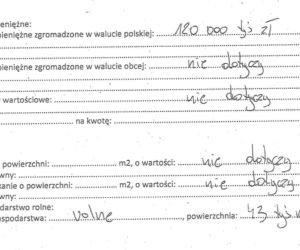 eniężne:
pieniężne zgromadzone w walucie polskiej: 120 000 tyś zł
pieniężne zgromadzone w walucie obcej: nie dotyczy
wartościowe: nie dotyczy
na kwotę:
powierzchni: m2, o wartości: nie dotyczy
wny:
kanie o powierzchni: m2, o wartości: nie dotyczy
wny:
darstwo rolne:
ospodarstwa: rolne , powierzchnia: 43 tyś.